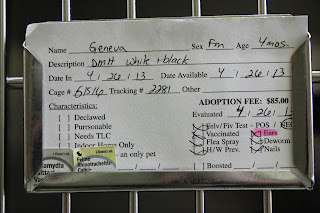 Name Geneva Sex Fm Age 4mos.
Description DMH white + black
Date In 4 / 26 / 13 Date Available 4 / 26 / 13
Cage # Tracking # 2281 Other
ADOPTION FEE: $85.00
Characteristics: Evaluated 4 / 26 / 13
[ ] Declawed [ ] Felv/Fiv Test - POS / NEG
[ ] Purrsonable [ ] Vaccinated [ ] Ears
[ ] Needs TLC [ ] Flea Spray [ ] Deworm
[ ] Indoor Home Only [ ] H/W Prev. [ ] Nails
as an only pet [ ] Boosted / /
Feline
Rhinotracheitis-
Calici-